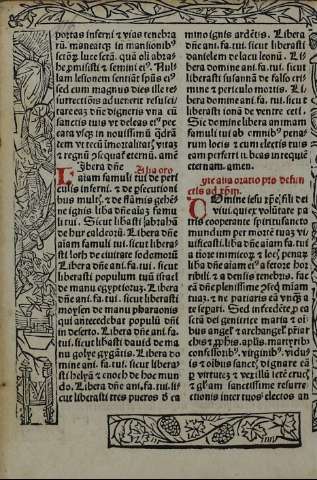 portas inferni ⁊ vias tenebra
rũ. maneatqȝ in mansionibꝰ
sctõꝝ luce scrã. quã oli abra-
he ꝓmisisti ⁊ semini eiꝰ. Nul-
lam lesionem sentiat sp̃us eiꝰ
sed cum magnus dies ille re-
surrectiõis aduenerit
rare eaȝ dñe digneris vna cũ
sanctis tuis ⁊ deleas eiꝰ pec
cata vsqȝ in nouissimũ
tem vt tecũ ĩmortalitatẽ vitaȝ
⁊ regnũ eternũ. amẽ
Alia oro
Libera dñe
aĩam famuli tui de peri
culis inferni. ⁊ de ꝓsecutioni
bus mult̃. ⁊ de flãmis gehẽ
ne ignis liba dñe aĩaȝ famu
li tui. Sicut libasti habrahã
de hur caldeorũ. Libera dñe
aiam famuli tui. sicut libera-
sti loth de ciuitate sodomorũ
Libera dñe ani. fa. tui. sicut
liberasti populum tuũ israel
de manu egyptiorũ. Libera
dñe ani. fa. tui. sicut liberasti
moysen de manu pharaonis
qui antecedebat populũ dni
in deserto. Libera dñe ani. fa.
tui. sicut libasti dauid de ma
nu golye gygãtis. Libera do
mine ani. fa. tui. sicut libera-
sti helyã ⁊ enoch de hoc mun
do. Libera dñe ani. fa. tui. si
cut liberasti tres pueros d̃ ca
mino ignis ardẽtis. Libera
dñe ani. fa. tui. sicut liberasti
danielem de lacu leonũ. Li-
bera domine ani. fa. tui. sicut
liberasti susannã de falso cri-
mine ⁊ periculo mortis. Li-
bera domine ani. fa. tui. sicut
liberasti ionã de ventre ceti.
Sic domine libera animam
famuli tui ab omnibꝰ penarum
locis ⁊ cum electis tuis
eam perferri iubeas in requiẽ
eternam. amen.
alia oratio pro defun
ctis ad xp̃m.
O domine iesu xp̃e, fili dei
viui, quieȝ volũtate pa
tris cooperante spiritusancto
mundum per mortẽ tuaȝ vi-
uificasti. liba dñe aĩam fa. tui
a tiore inimicoꝝ. ⁊ de loco penaȝ
liba dñe aĩam eiꝰ a fetore hor
ribili. ⁊ a densis tenebris. fac
eã dñe plenissime miam
tuaȝ. ⁊ ne patiaris eã vnqȝ a
te sepati. Sed intercedẽte
scrã dei genitrice maria ⁊ oi-
bus angel̃ ⁊ archangel̃ pr̃iar
chis ꝓphis, aplis, martyribꝰ
confessoribꝰ. virginibꝰ. viduis
⁊ oibus sanctꝰ, dignare eã
⁊ vexillũ scte crucꝰ,
⁊ gl̃iam sanctissime resurre-
ctionis inter tuos electos an